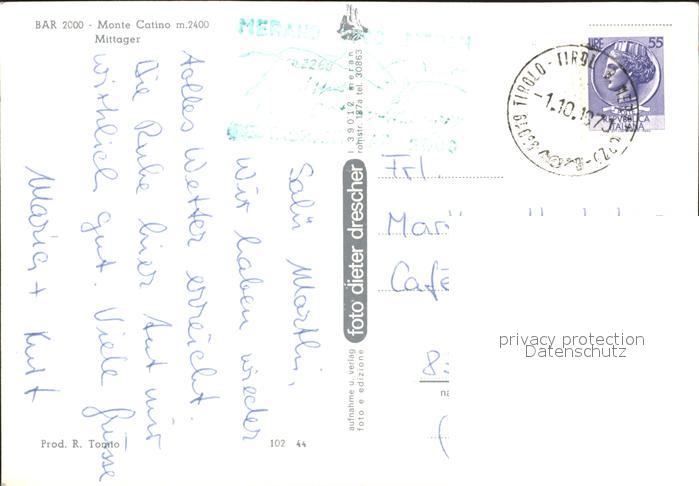 BAR 2000 - Monte Catino m.2400
Mittager
MERANO
m.2260
Salü Marthi,
Wir haben wieder
tolles Wetter erreicht.
Die Ruhe hier tut uns
wirklich gut. Viele Grüsse
Maria + Kurt
Prod. R. Tomio
102 44
foto dieter drescher
I 39012 meran
romstr. 187a tel. 30863
aufnahme u. verlag
foto e edizione
LIRE 55
REPUBBLICA
ITALIANA
39019 TIROLO - TIROL
-1.10.197
Frl.
Mar
Café
8
na
privacy protection
Datenschutz